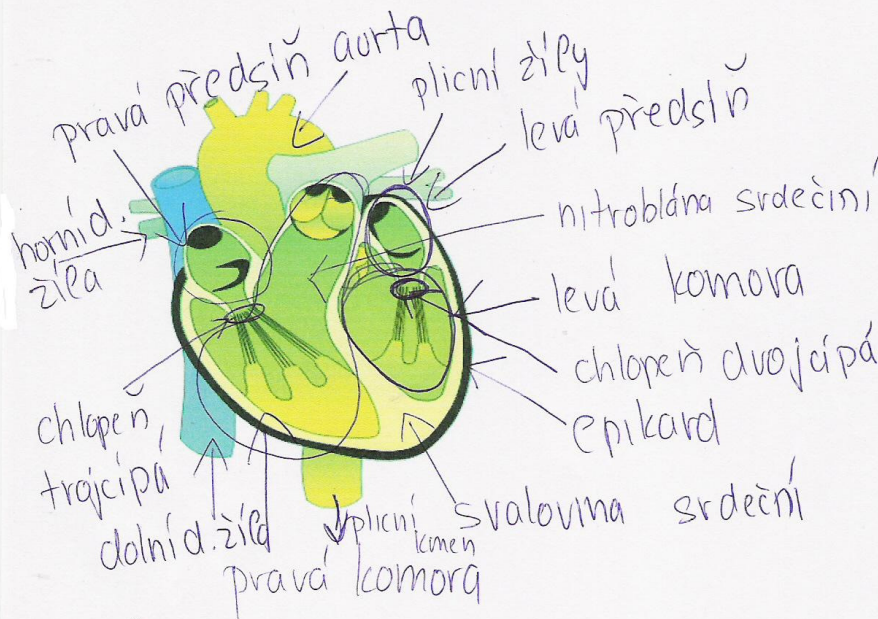 pravá předsíň
aorta
plicní žíly
levá předsíň
horní d.
žíla
nitroblána srdečiní
levá komora
chlopeň dvojcípá
epikard
chlopeň
trojcípá
dolní d. žíla
plicní
kmen
svalovina srdeční
pravá komora